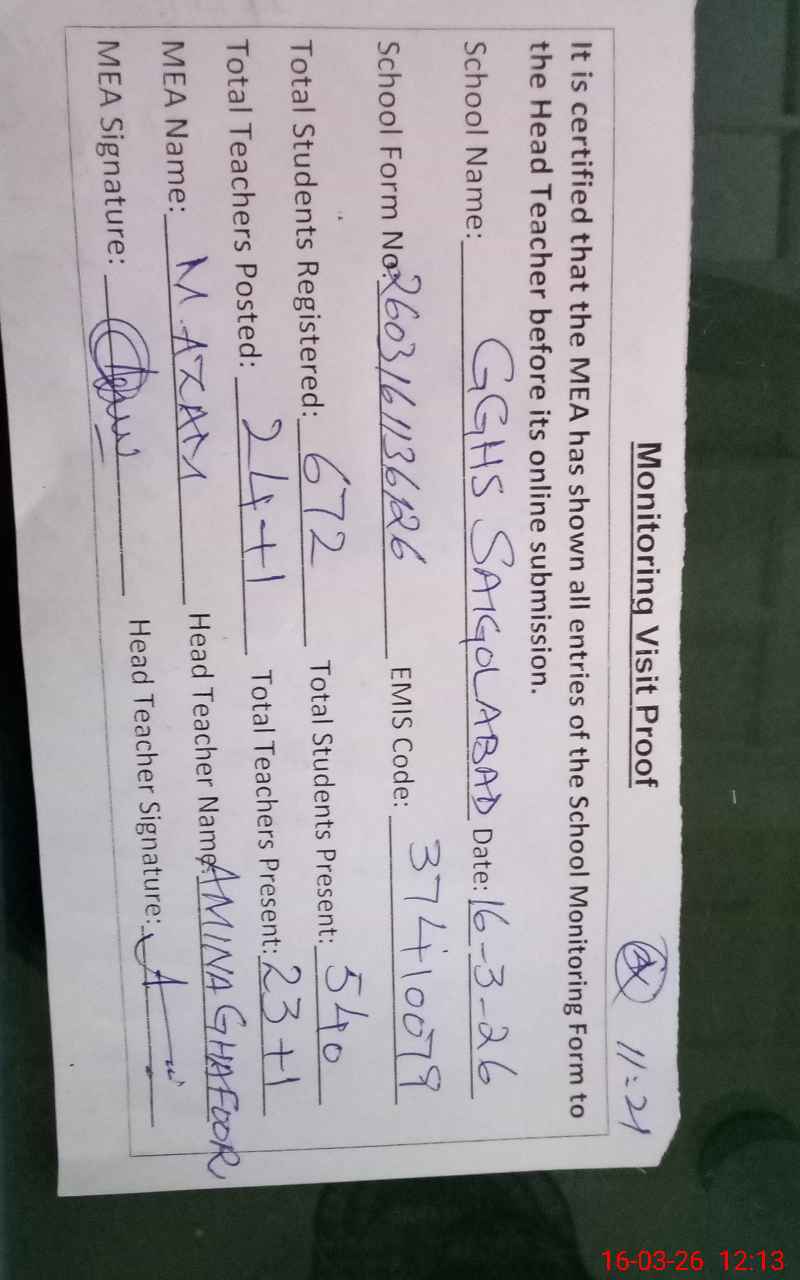 Monitoring Visit Proof
11:21
It is certified that the MEA has shown all entries of the School Monitoring Form to
the Head Teacher before its online submission.
School Name: GGHS SAIGOLABAD Date: 16-3-26
School Form No: 2603161136126 EMIS Code: 37410079
Total Students Registered: 672 Total Students Present: 540
Total Teachers Posted: 24+1 Total Teachers Present: 23+1
MEA Name: M. AZAM Head Teacher Name: AMINA GHAFOOR
MEA Signature: Head Teacher Signature:
16-03-26 12:13